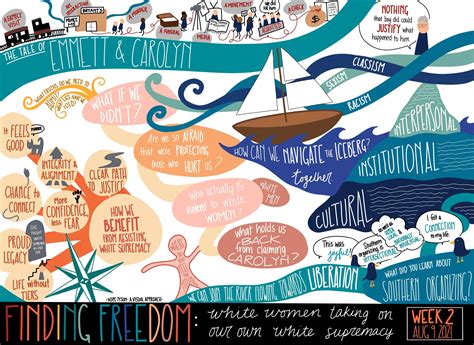 A FAMILY VISIT
BRYANT'S MARKET
A FUNERAL
MEDIA
A MOVEMENT
A CONFESSION
THE TALE OF
EMMETT & CAROLYN
NOTHING
that boy did could
JUSTIFY what
happened to him
CLASSISM
SEXISM
RACISM
WHAT IF WE
DIDN'T?
Are we so AFRAID
that we're PROTECTING
those who HURT us?
Who actually IS
violent to WHITE
WOMEN?
WHITE
MEN
What holds us
BACK
from claiming
CAROLYN?
HOW CAN WE NAVIGATE THE ICEBERG?
together
INTERPERSONAL
INSTITUTIONAL
CULTURAL
IT FEELS
GOOD
INTEGRITY &
ALIGNMENT
CLEAR PATH
TO JUSTICE
CHANCE to
CONNECT
MORE
CONFIDENCE,
less FEAR
PROUD
LEGACY
LIFE without
TIERS
HOW WE
BENEFIT
FROM RESISTING
WHITE SUPREMACY
This was
joyful!
I felt a
CONNECTION
to my life
WE CAN JOIN THE RIVER FLOWING TOWARDS LIBERATION
WHAT DID YOU LEARN ABOUT
SOUTHERN ORGANIZING?
FINDING FREEDOM: white women taking on
our own white supremacy
WEEK 2
AUG 9 2021